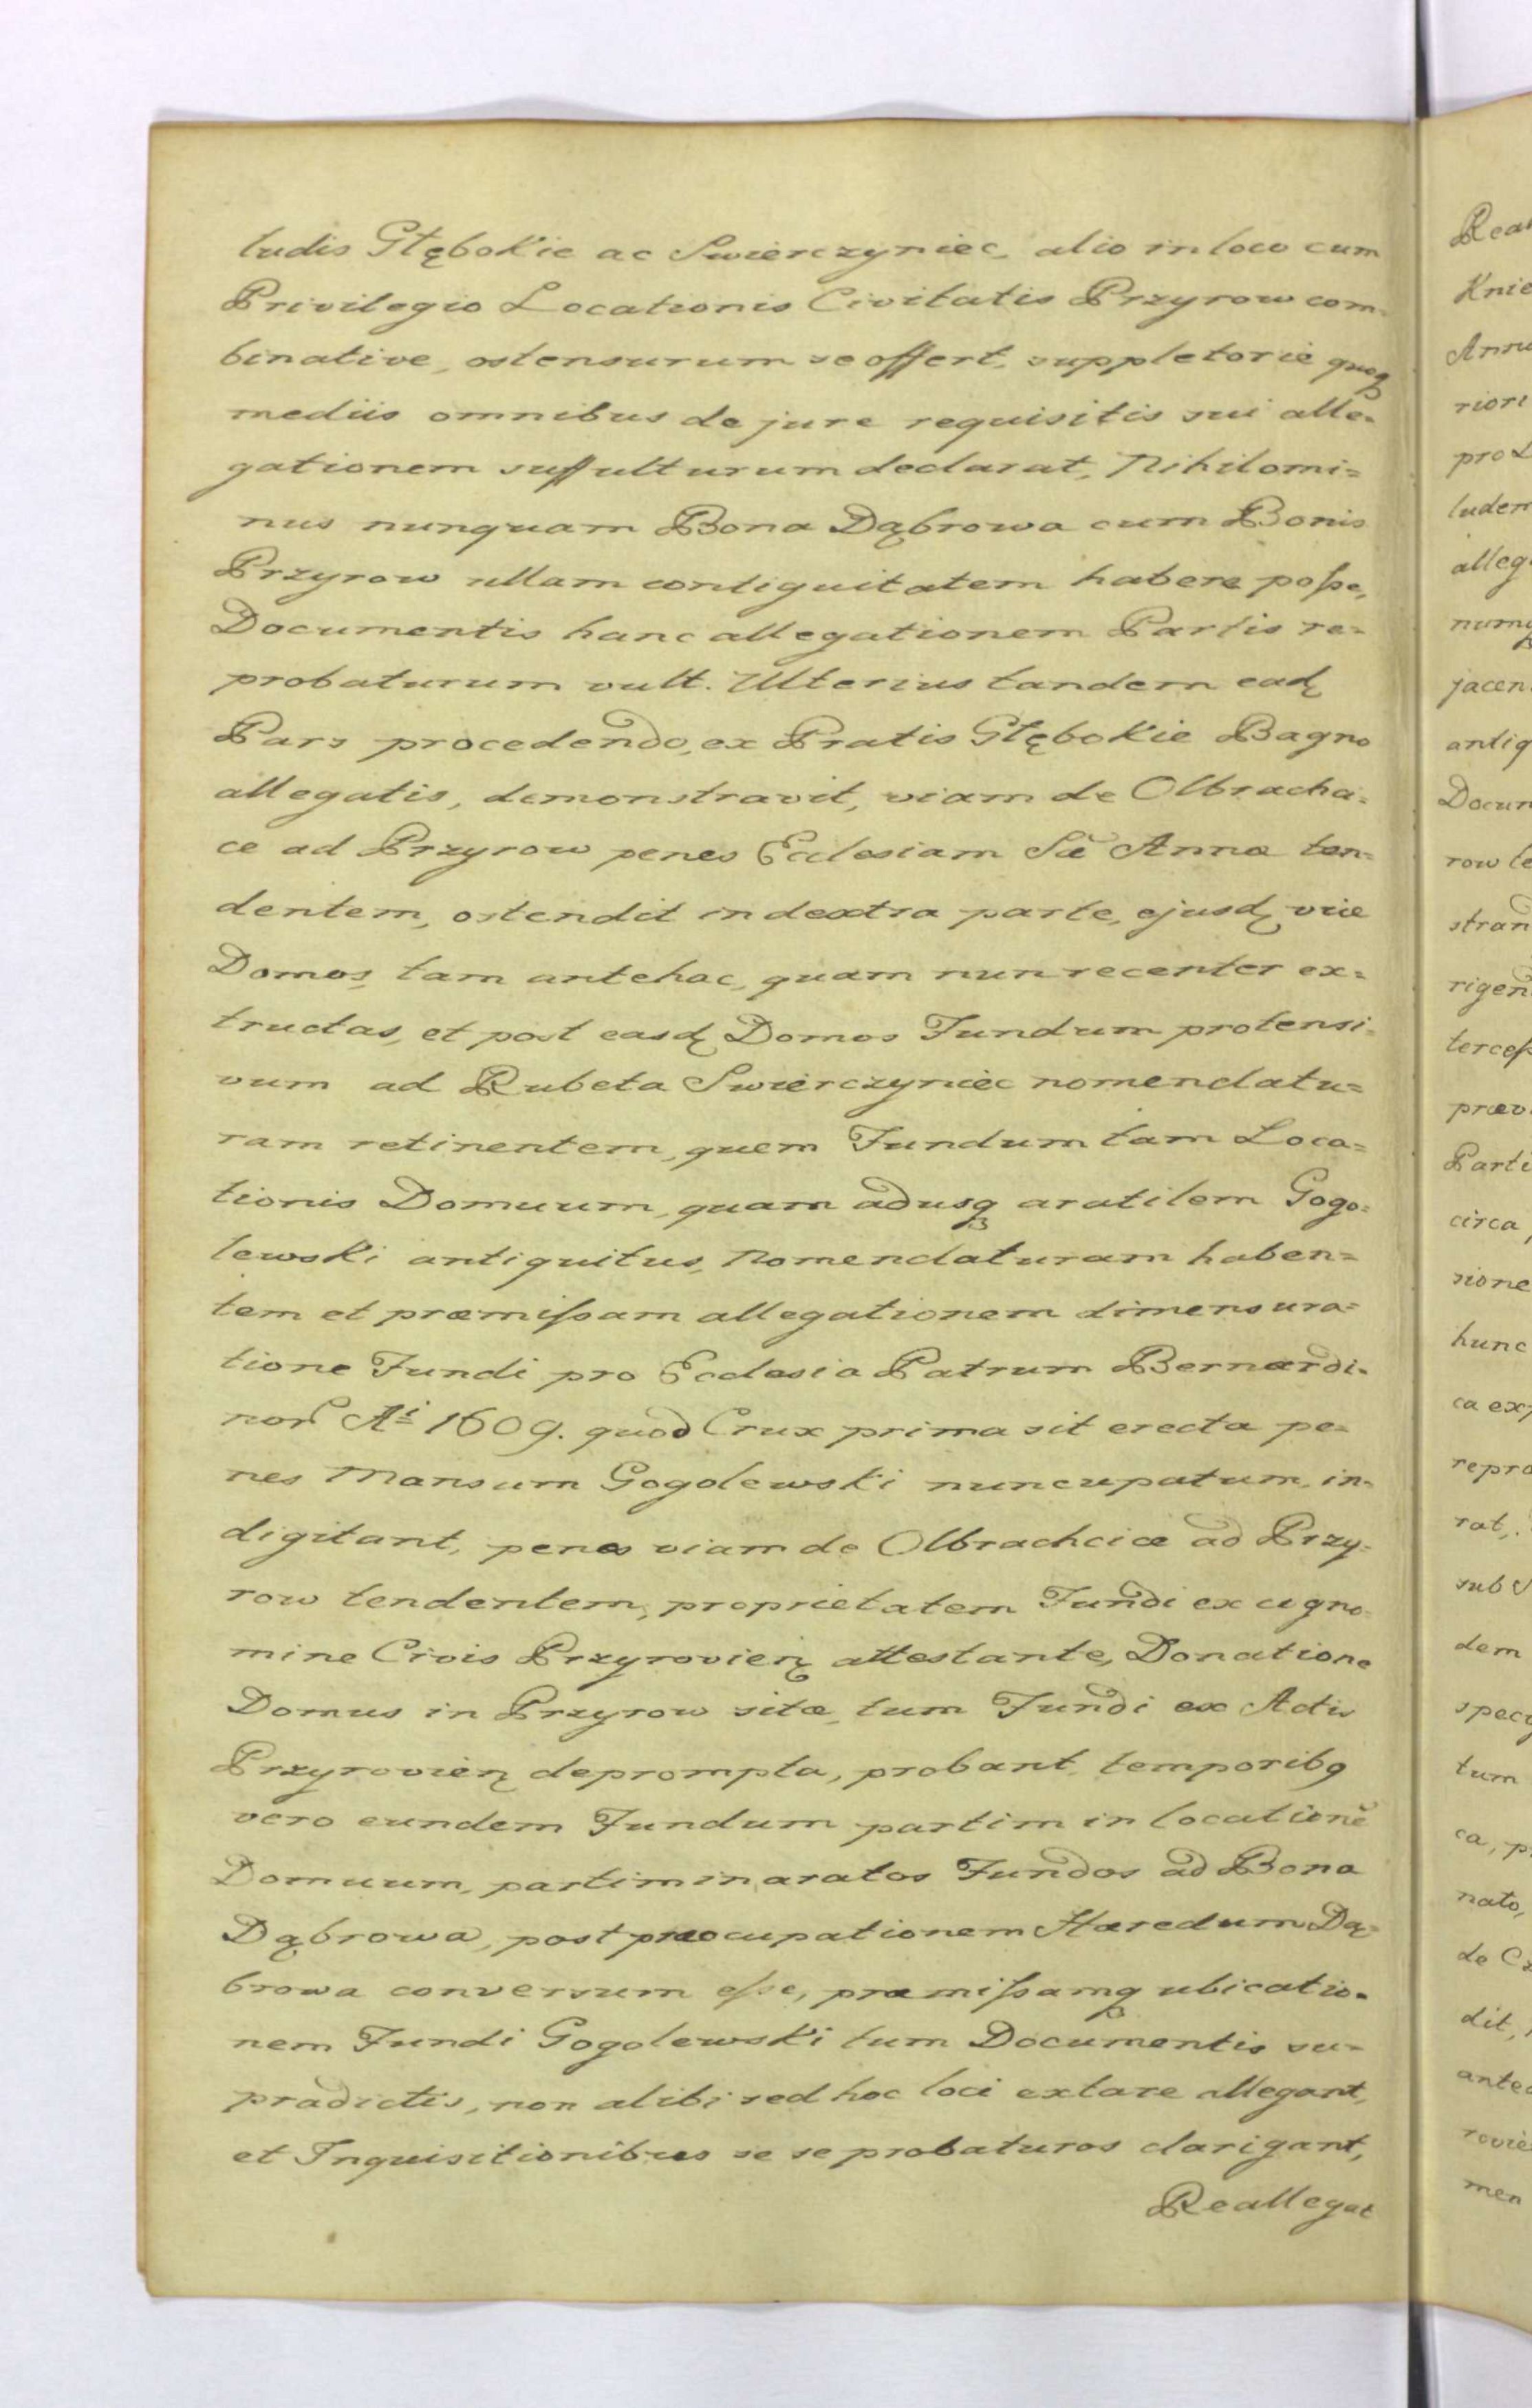 ludis Głębokie ac Swierczyniec, alio in loco cum
Privilegio Locationis Civitatis Przyrow com-
binative, ostensurum se offert, suppletorie quoq
mediis omnibus de jure requisitis sui alle=
gationem suffulturum declarat, Nihilomi=
nus nunquam Bona Dąbrowa cum Bonis
Przyrow ullam contiguitatem habere poſse,
Documentis hanc allegationem Partis re=
probaturum vult. Ulterius tandem ead
Pars procedendo, ex Pratis Głębokie Bagno
allegatis, demonstravit, viam de Olbracha=
ce ad Przyrow penes Ecclesiam Sæ Annæ ten=
dentem, ostendit in dextra parte, ejusd viæ
Domos, tam antehac, quam nun recenter ex=
tructas, et post easd Domos Fundum protensi=
vum ad Rubeta Swierczyniec nomenclatu=
ram retinentem, quem Fundum tam Loca=
tionis Domuum, quam adusq aratilem Gogo=
lewski antiquitus, Nomenclaturam haben=
tem et præmiſsam allegationem dimensura=
tione Fundi pro Ecclesia Patrum Bernardi=
nor Ai 1609. quod Crux prima sit erecta pe=
nes Mansum Gogolewski nuncupatum, in=
digitant, penes viam de Olbrachcice ad Przy=
row tendentem, proprietatem Fundi ex cogno=
mine Civis Przyrovien attestante, Donatione
Domus in Przyrow sitæ, tum Fundi ex Actis
Przyrovien deprompta, probant, temporibq
vero eundem Fundum partim in locatione
Domuum, partim in aratos Fundos ad Bona
Dąbrowa, post præocupationem Hæredum Dą=
browa conversum eſse, præmiſsamq ubicatio=
nem Fundi Gogolewski tum Documentis su=
pradictis, non alibi sed hoc loci extare allegant,
et Inquisitionibus se se probaturos clarigant,
Reallegat